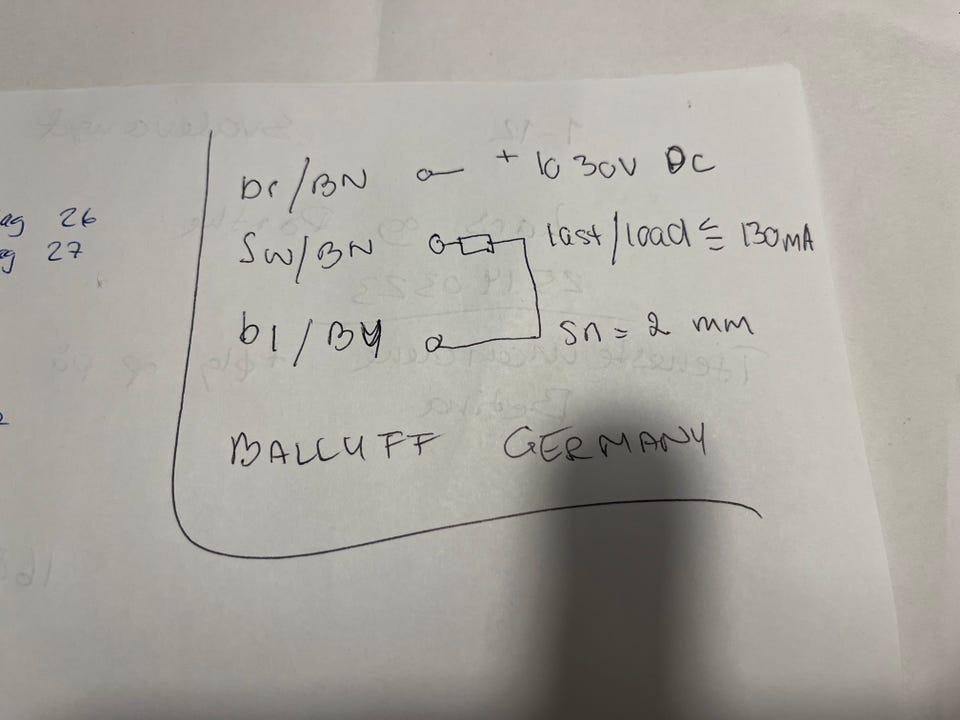 ag 26
g 27
br/BN + 10 30V DC
SW/BN last/load ≤ 130mA
bl/BU sn = 2 mm
BALLUFF GERMANY